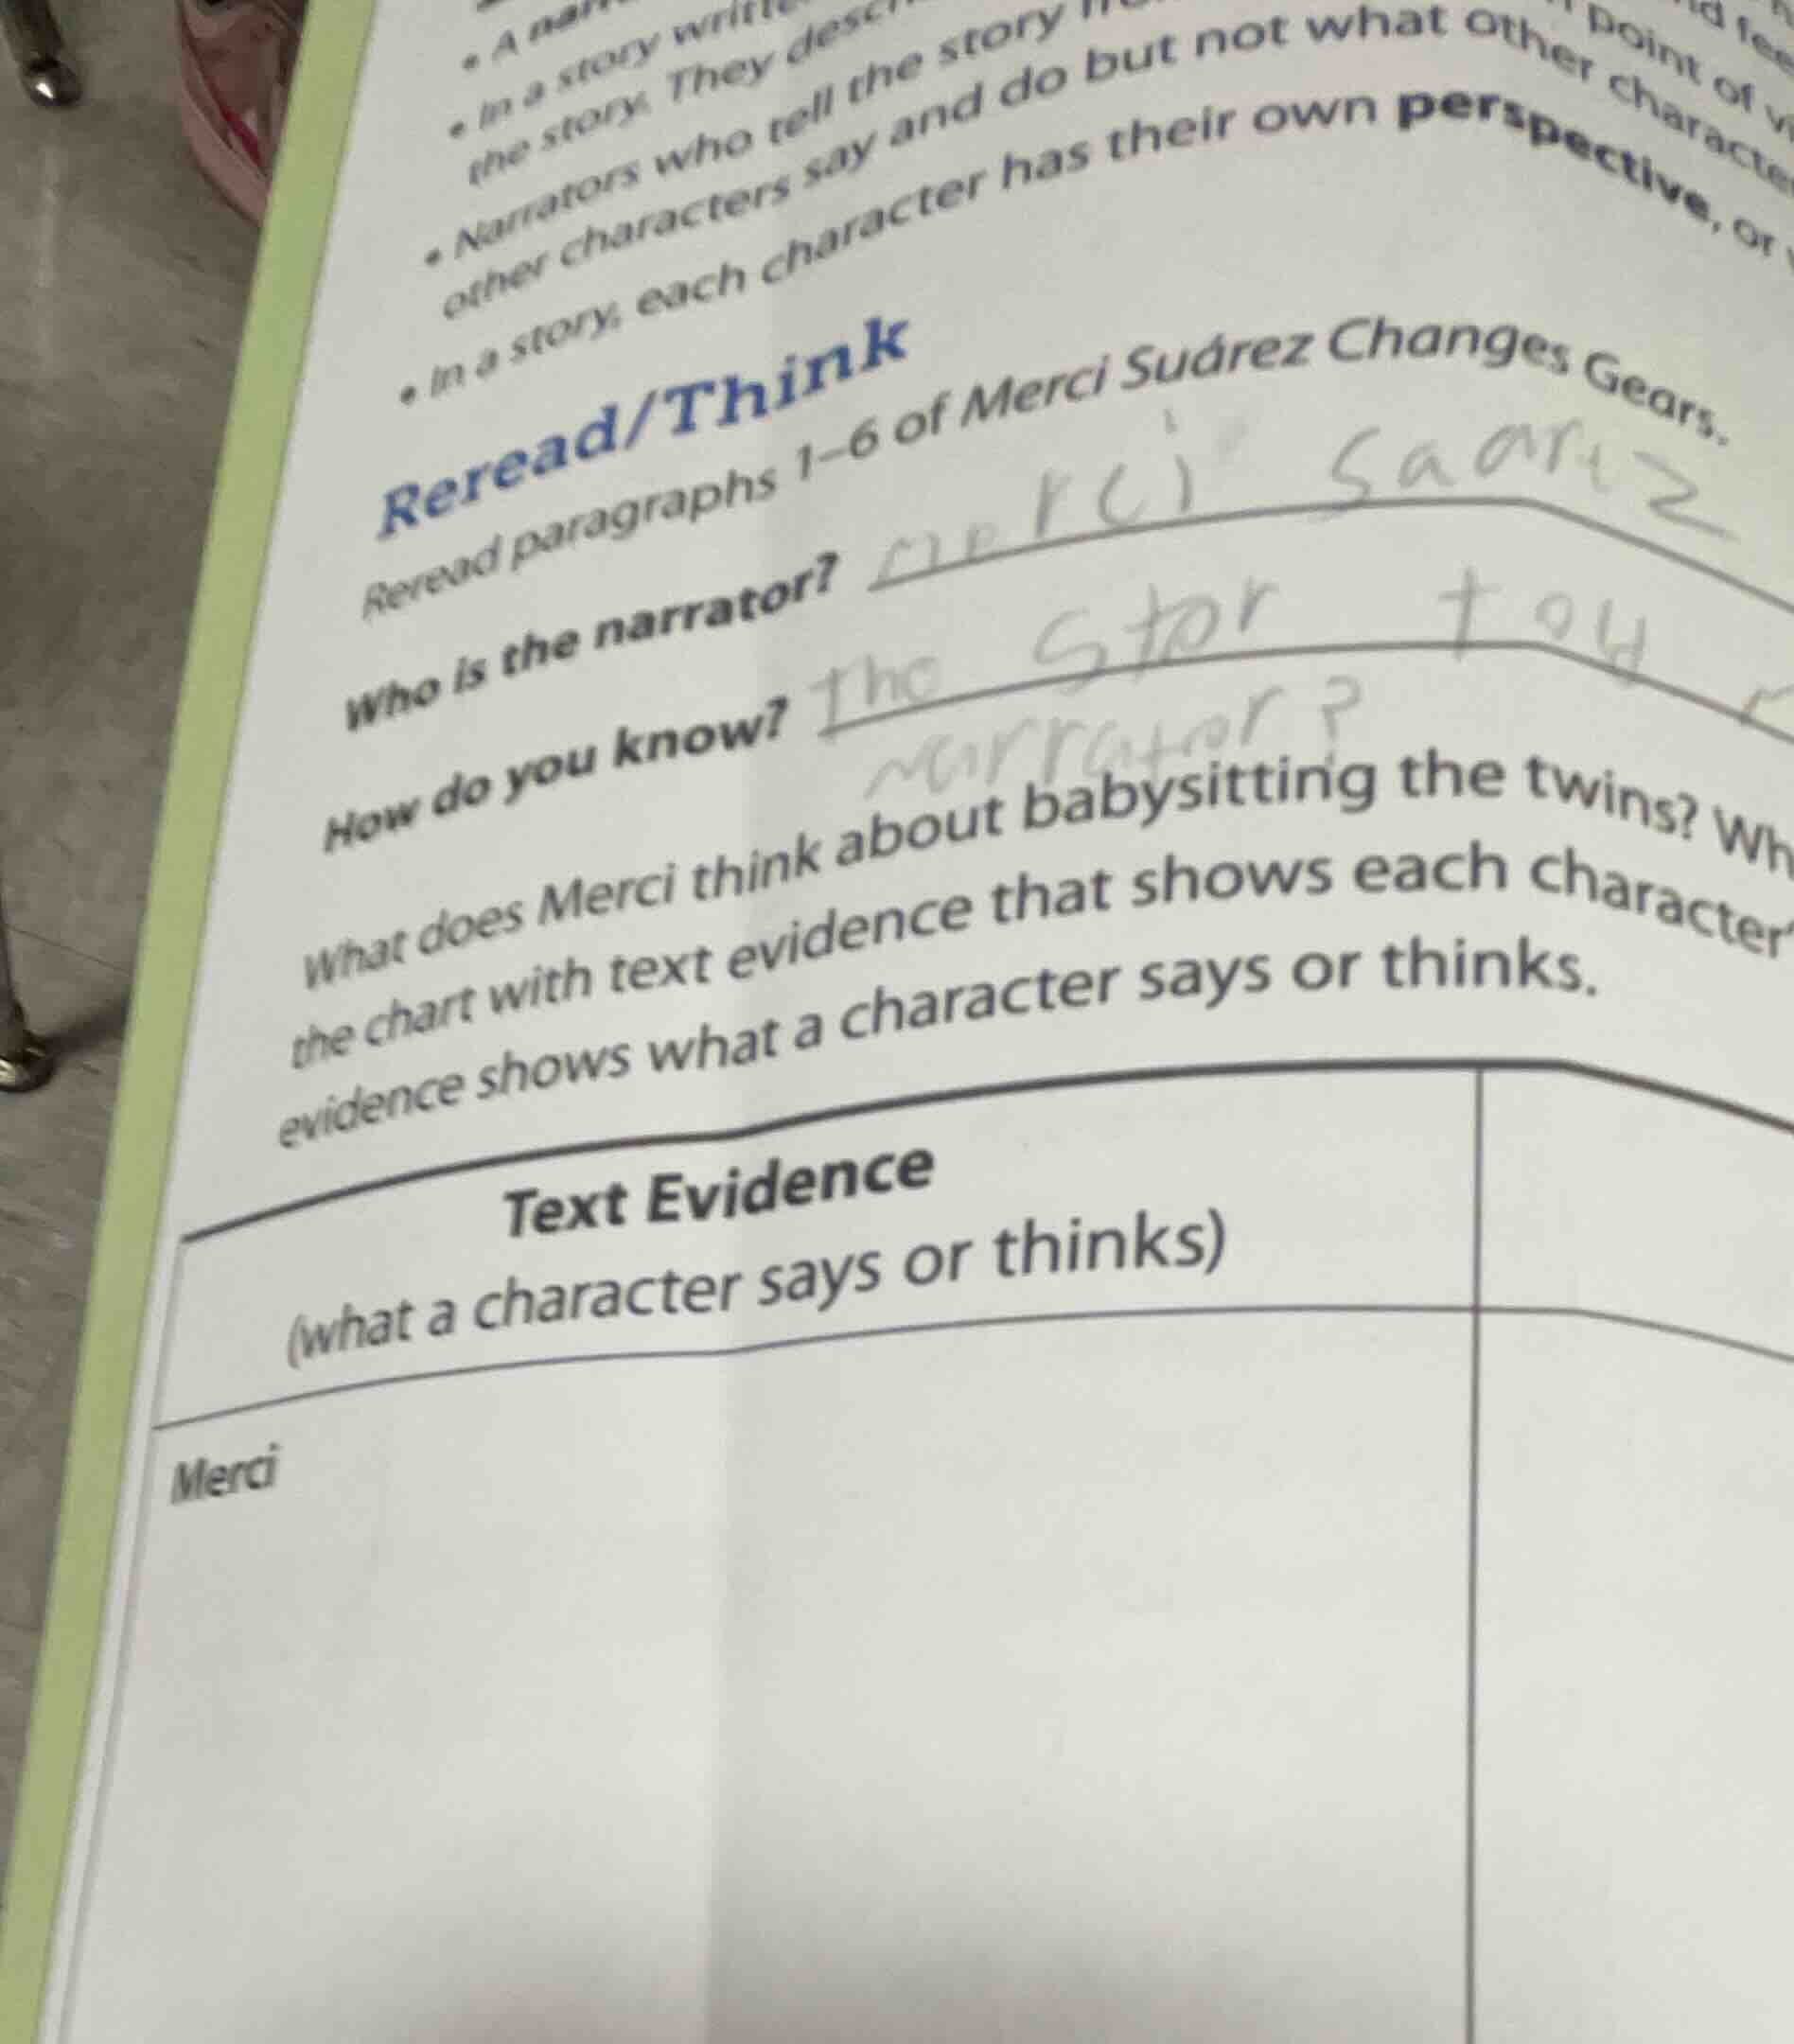 • A nar
• In a story writte
the story. They descr
• Narrators who tell the story point of vi
other characters say and do but not what other character
• In a story, each character has their own perspective, or
Reread/Think
Reread paragraphs 1–6 of Merci Suárez Changes Gears.
Who is the narrator? merci Saariz
How do you know? The Stor
narrator?
What does Merci think about babysitting the twins? Wh
the chart with text evidence that shows each character'
evidence shows what a character says or thinks.
Text Evidence
(what a character says or thinks)
Merci